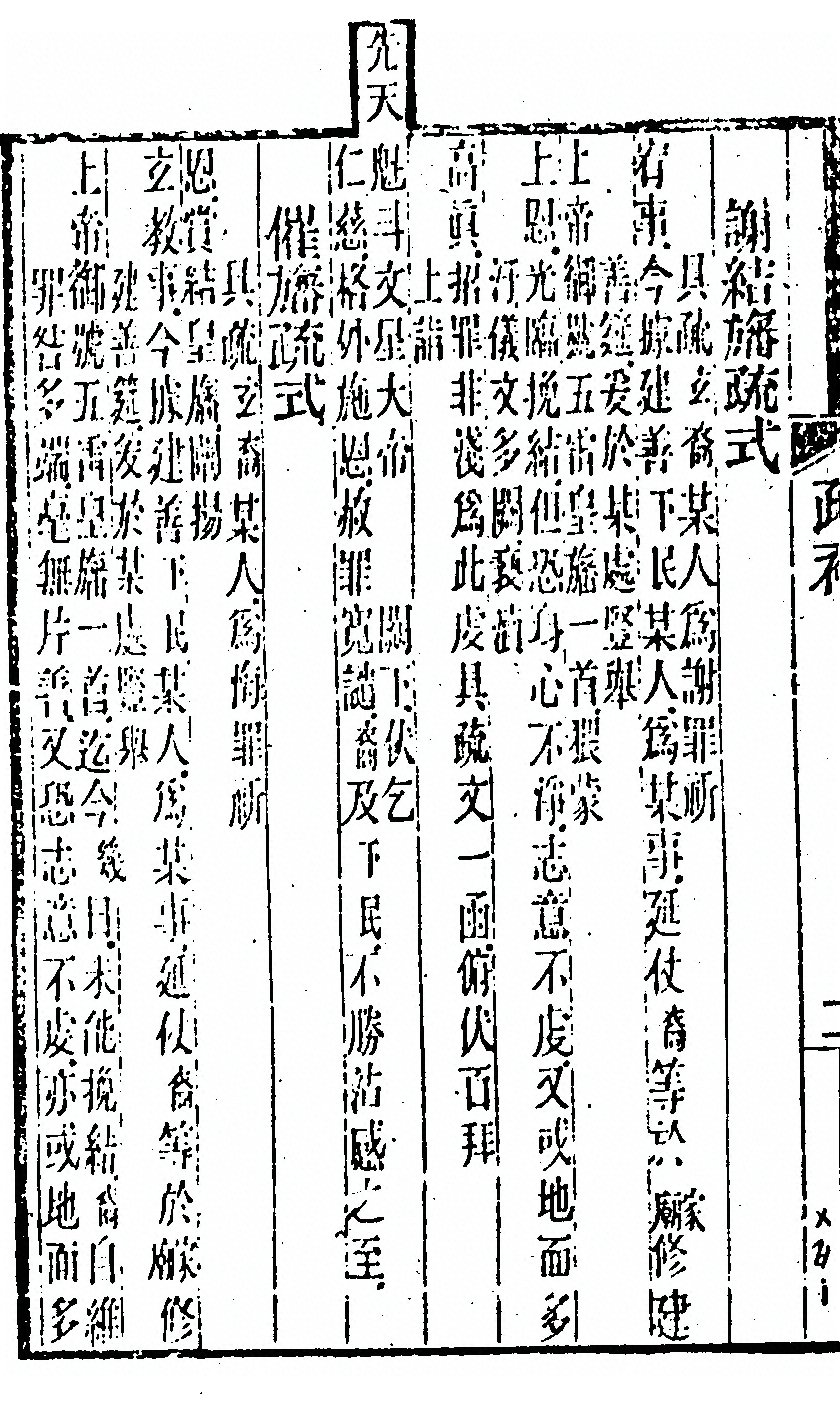 謝結旛疏式
具疏玄裔某人爲謝罪祈
宥事今據建善下民某人爲某事延仗裔等於家廟修建
善筵爰於某處豎舉
上帝御號五雷皇旛一首猥蒙
上恩光臨挽結但恐身心不淨志意不虔又或地面多
汙儀文多闕褻瀆
高眞招罪非淺爲此虔具疏文一函俯伏百拜
上詣
先天魁斗文星大帝 闕下伏乞
仁慈格外施恩赦罪寬 裔及下民不勝沾感之至
催旛疏式
具疏玄裔某人爲悔罪祈
恩賞結呈旛闡揚
玄教事今據建善下民某人爲某事延仗裔等於家廟修
建善筵爰於某處豎舉
上帝御號五雷皇旛一首迄今幾日未能挽結裔自維
罪咎多端毫無片善又恐志意不虔亦或地面多